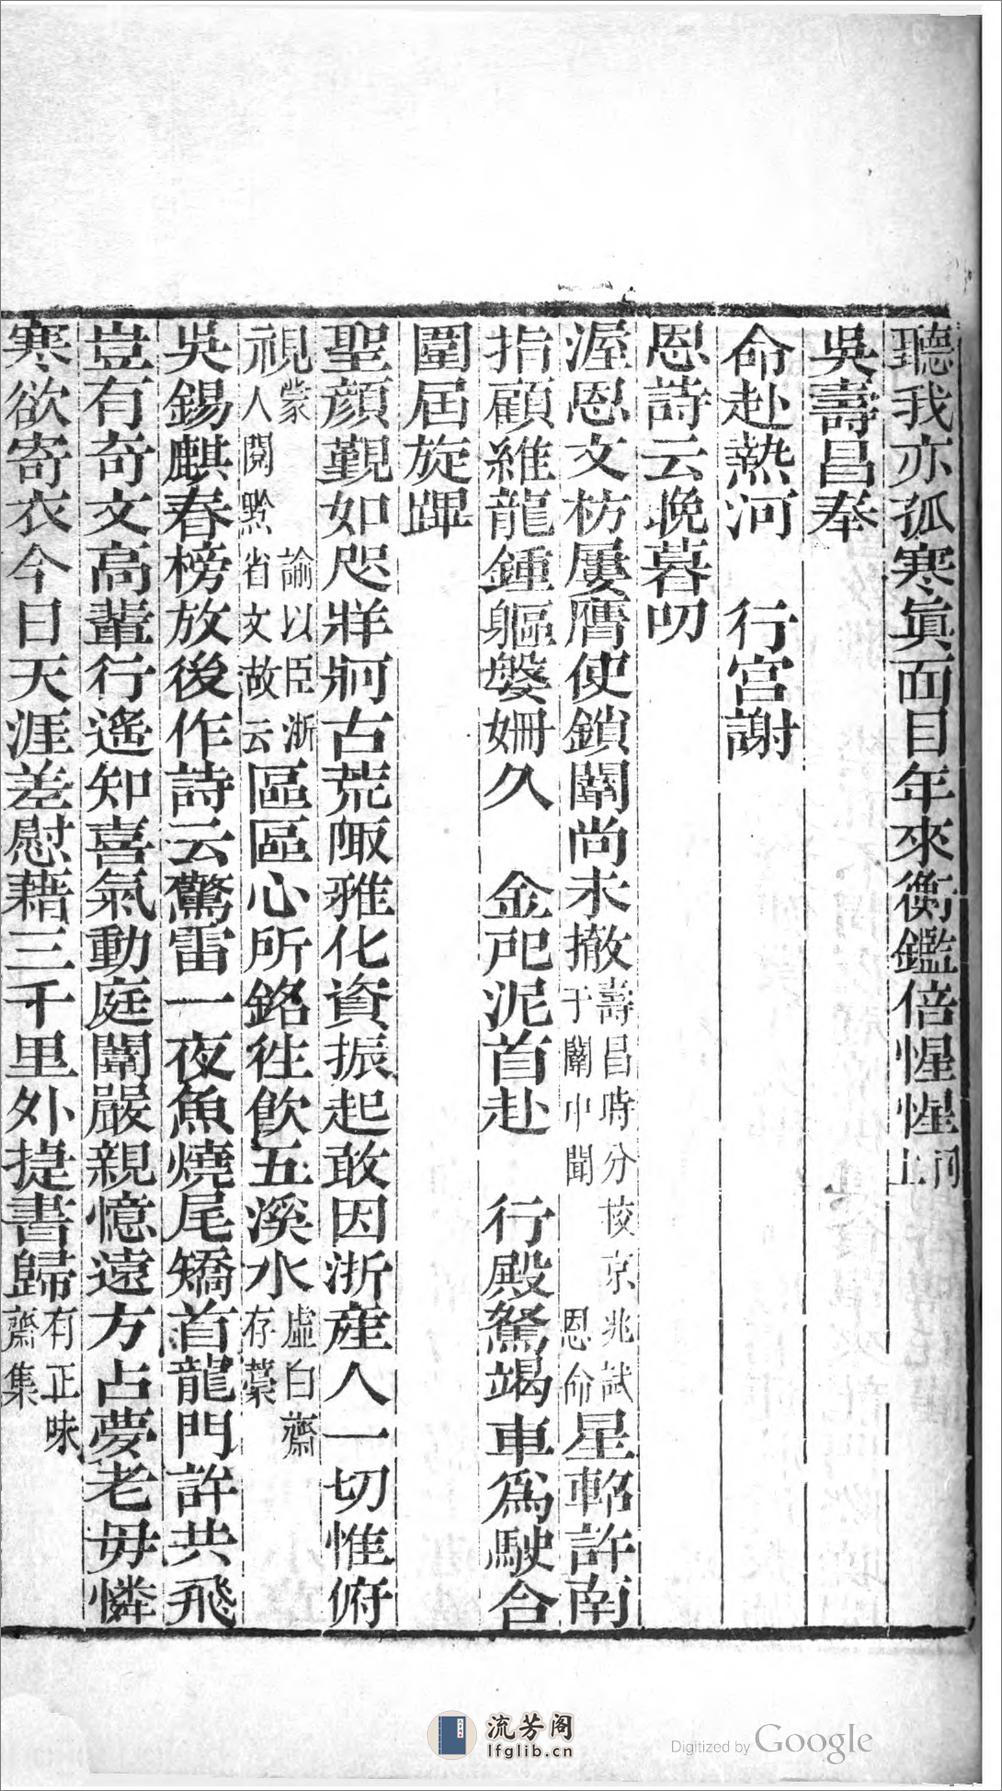 聽我亦孤寒眞面目年來衡鑑倍惺惺同上
吳壽昌奉
命赴熱河　行宮謝
恩詩云晚暮叨
渥恩文枋屢膺使鎖闈尚未撤壽昌時分校京兆試于闈中聞　恩命星軺許南
指顧維龍鍾軀媻姍久　金戺泥首赴　行殿駑竭車爲駛合
圍屆旋蹕
聖顏覲如咫牂牁古荒陬雅化資振起敢因浙產人一切惟俯
視蒙　諭以臣浙人閱黔省文故云區區心所銘徃飮五溪水虛白齋存藁
吳錫麒春榜放後作詩云驚雷一夜魚燒尾矯首龍門許共飛
豈有奇文高輩行遙知喜氣動庭闈嚴親憶遠方占夢老毋憐
寒欲寄衣今日天涯差慰藉三千里外捷書歸有正味齋集
流芳阁
lfglib.cn
Digitized by Google